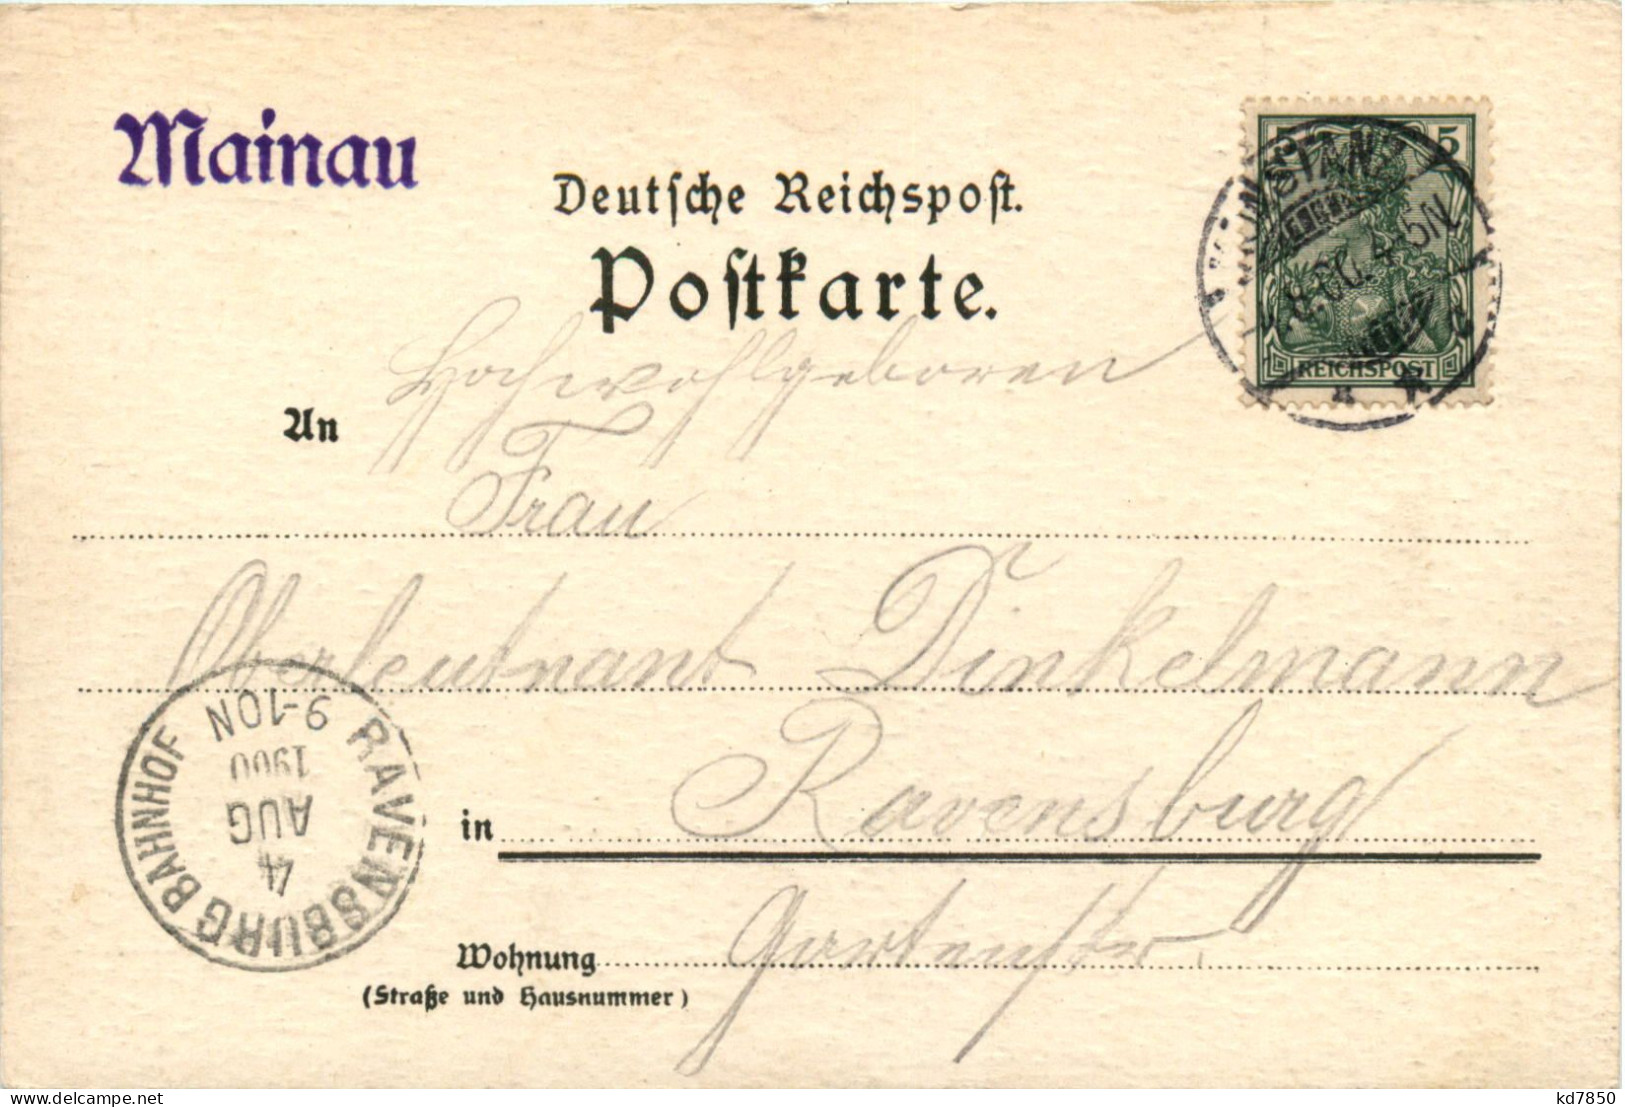 Mainau
Deutsche Reichspost.
Postkarte.
5 5
KONSTANZ
4-5N
REICHSPOST
Hochwohlgeboren
An
Frau
Oberleutnant Dinkelmann
in Ravensburg
Wohnung Gartenstr
(Straße und Hausnummer)
RAVENSBURG BAHNHOF
4
AUG
1900
9-10N
kd7850